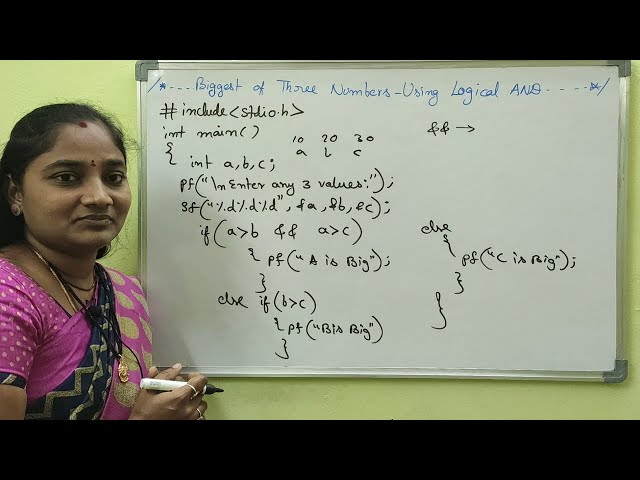 /*---Biggest of Three Numbers-Using Logical AND----*/
#include<stdio.h>
int main()
10 20 30
a b c
{ int a,b,c;
pf("\nEnter any 3 values:");
sf("%d%d%d",&a,&b,&c);
if(a>b && a>c)
{ pf("A is Big");
}
else if(b>c)
{ pf("B is Big")
}
&& →
else
{
pf("C is Big");
}
}